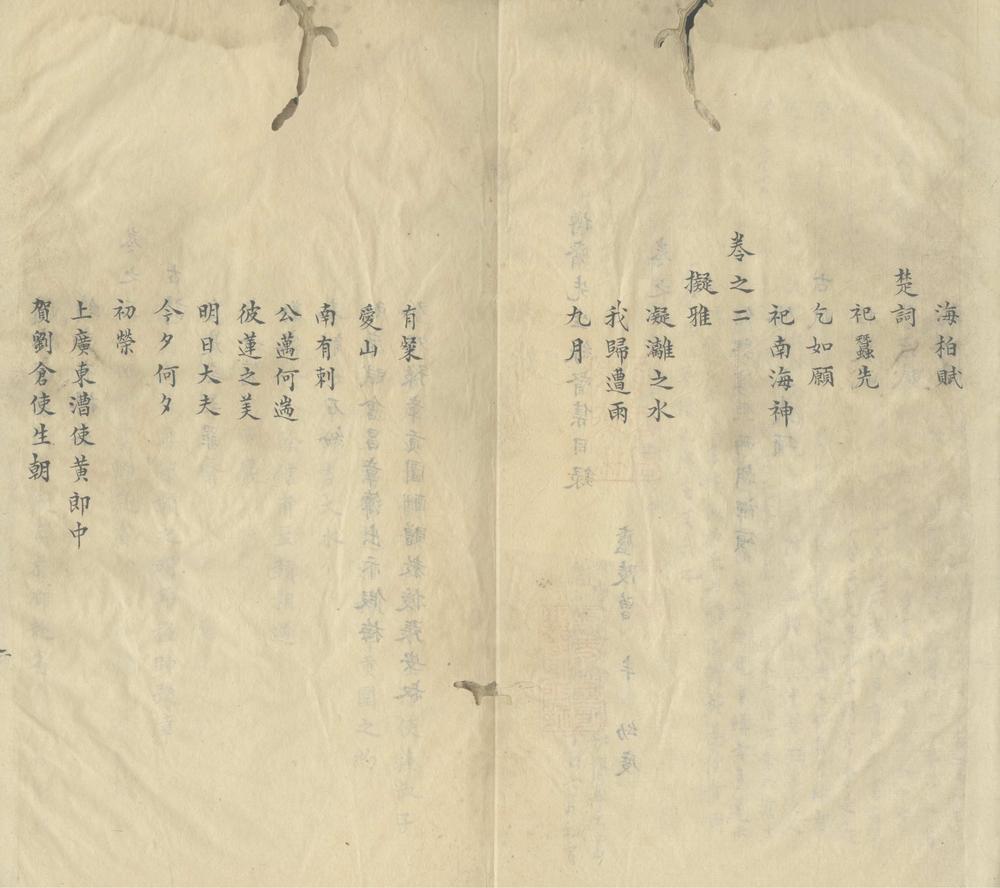 海柏賦
楚詞
祀蠶先
乞如願
祀南海神
卷之二
擬雅
凝灕之水
我歸遭雨
九月
有菓
愛山
南有刺
公邁何遄
彼蓮之美
明日大夫
今夕何夕
初榮
上廣東漕使黄郎中
賀劉倉使生朝